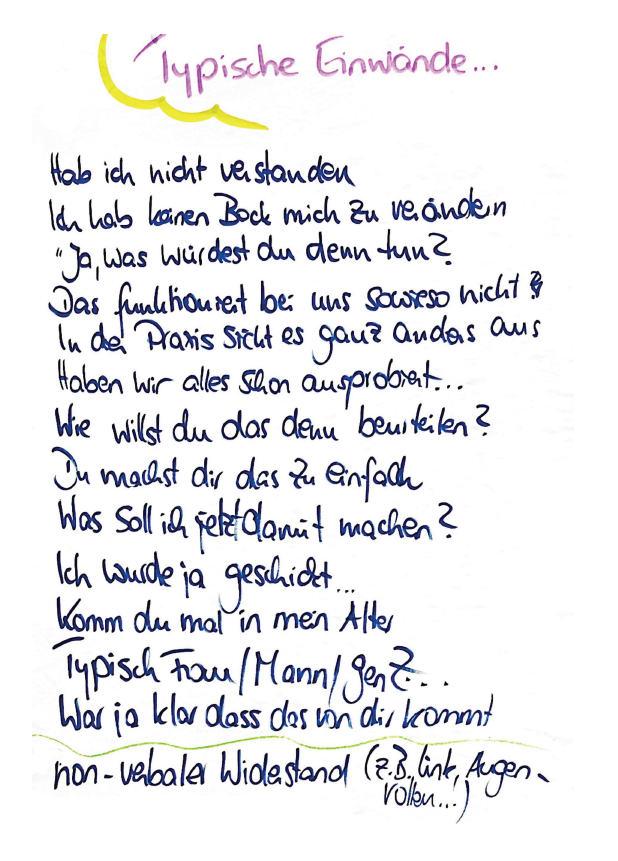 Typische Einwände...
Hab ich nicht verstanden
Ich hab keinen Bock mich zu verändern
"Ja, was würdest du denn tun?
Das funktioniert bei uns sowieso nicht
In der Praxis sieht es ganz anders aus
Haben wir alles schon ausprobiert...
Wie willst du das denn beurteilen?
Du machst dir das zu einfach
Was soll ich jetzt damit machen?
Ich wurde ja geschickt...
Komm du mal in mein Alter
Typisch Frau/Mann/gen Z...
War ja klar dass das von dir kommt
non-verbaler Widerstand (z.B. Augen-
rollen...!)